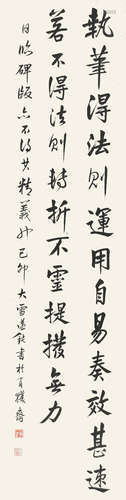 執筆得法則運用自易奏效甚速
若不得法則轉折不靈提撥無力
日臨碑版亦不得其精義也己卯大雪蓋銘書於